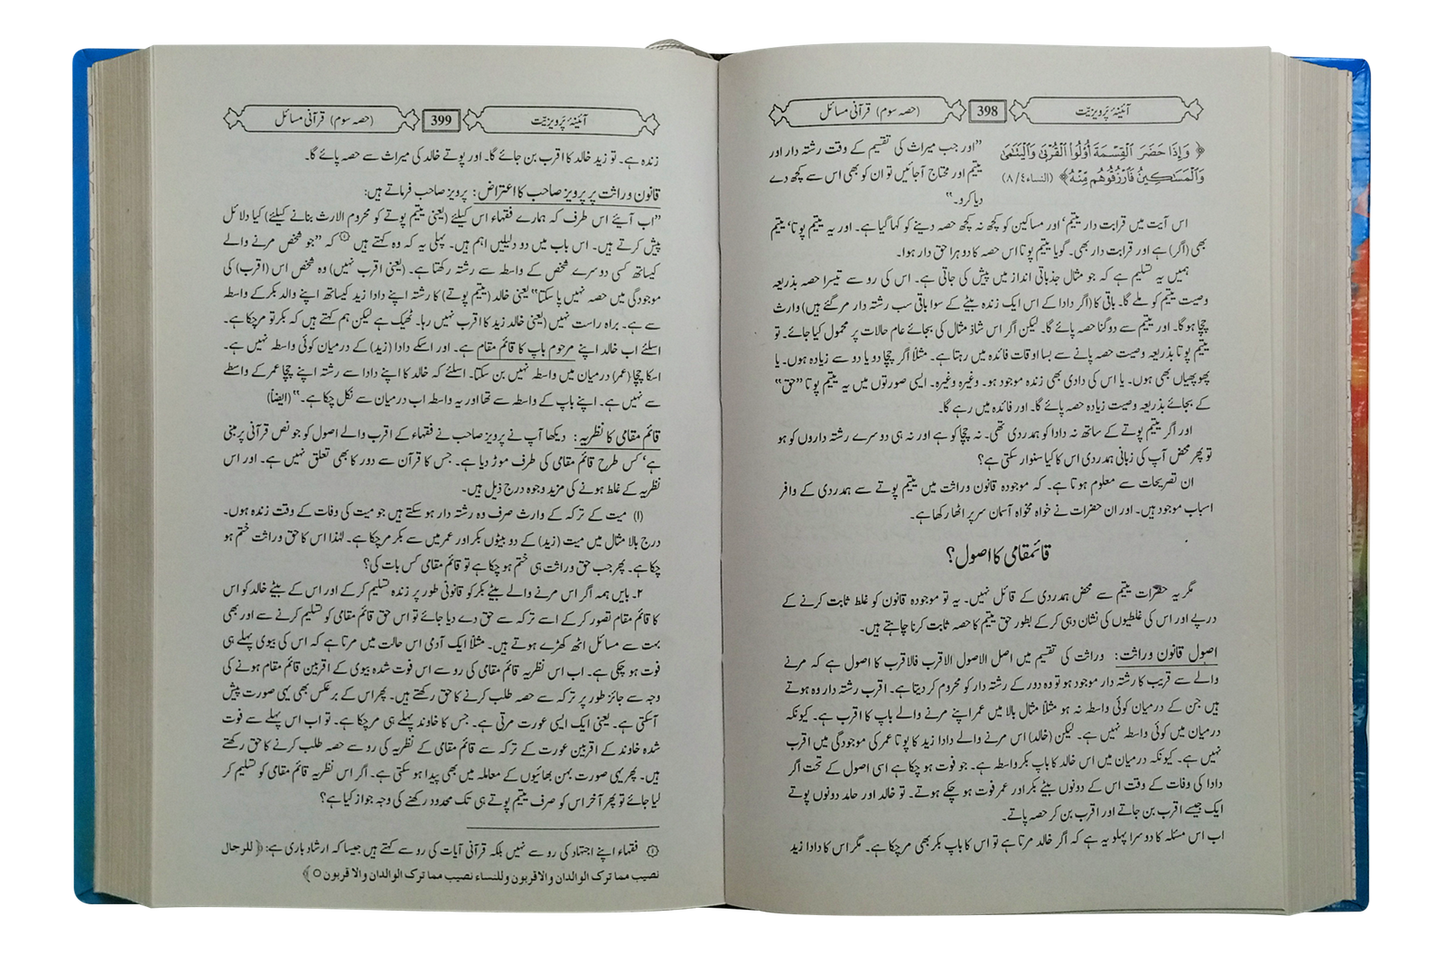 آئینۂ پرویزیت
398
(حصہ سوم) قرآنی مسائل
﴿ وَإِذَا حَضَرَ الْقِسْمَةَ أُولُوا الْقُرْبَىٰ وَالْيَتَامَىٰ
وَالْمَسَاكِينُ فَارْزُقُوهُم مِّنْهُ ﴾ (النساء۸/۴)
”اور جب میراث کی تقسیم کے وقت رشتہ دار اور
یتیم اور محتاج آجائیں تو ان کو بھی اس سے کچھ دے
دیا کرو۔“
اس آیت میں قرابت دار یتیم‘ اور مساکین کو کچھ نہ کچھ حصہ دینے کو کہا گیا ہے۔ اور یہ یتیم پوتا‘ یتیم
بھی (اگر) ہے اور قرابت دار بھی۔ گویا یتیم پوتا اس حصہ کا دوہرا حق دار ہوا۔
ہمیں یہ تسلیم ہے کہ جو مثال جذباتی انداز میں پیش کی جاتی ہے۔ اس کی رو سے تیسرا حصہ بذریعہ
وصیت یتیم کو ملے گا۔ باقی کا (اگر دادا کے اس ایک زندہ بیٹے کے سوا باقی سب رشتہ دار مر گئے ہیں) وارث
چچا ہو گا۔ اور یتیم سے دوگنا حصہ پائے گا۔ لیکن اگر اس شاذ مثال کی بجائے عام حالات پر محمول کیا جائے۔ تو
یتیم پوتا بذریعہ وصیت حصہ پانے سے بسا اوقات فائدہ میں رہتا ہے۔ مثلاً اگر چچا دو یا دو سے زیادہ ہوں۔ یا
پھوپھیاں بھی ہوں۔ یا اس کی دادی بھی زندہ موجود ہو۔ وغیرہ وغیرہ۔ ایسی صورتوں میں یہ یتیم پوتا ”حق“
کے بجائے بذریعہ وصیت زیادہ حصہ پائے گا۔ اور فائدہ میں رہے گا۔
اور اگر یتیم پوتے کے ساتھ نہ دادا کو ہمدردی تھی۔ نہ چچا کو ہے اور نہ ہی دوسرے رشتہ داروں کو ہو
تو پھر محض آپ کی زبانی ہمدردی اس کا کیا سنوار سکتی ہے؟
ان تصریحات سے معلوم ہوتا ہے۔ کہ موجودہ قانون وراثت میں یتیم پوتے سے ہمدردی کے وافر
اسباب موجود ہیں۔ اور ان حضرات نے خواہ مخواہ آسمان سر پر اٹھا رکھا ہے۔
قائمقامی کا اصول؟
مگر یہ حضرات یتیم سے محض ہمدردی کے قائل نہیں۔ یہ تو موجودہ قانون کو غلط ثابت کرنے کے
درپے اور اس کی غلطیوں کی نشان دہی کر کے بطور حق یتیم کا حصہ ثابت کرنا چاہتے ہیں۔
اصول قانون وراثت: وراثت کی تقسیم میں اصل الاصول الاقرب فالاقرب کا اصول ہے کہ مرنے
والے سے قریب کا رشتہ دار موجود ہو تو وہ دور کے رشتہ دار کو محروم کر دیتا ہے۔ اقرب رشتہ دار وہ ہوتے
ہیں جن کے درمیان کوئی واسطہ نہ ہو مثلاً مثال بالا میں عمر اپنے مرنے والے باپ کا اقرب ہے۔ کیونکہ
درمیان میں کوئی واسطہ نہیں ہے۔ لیکن (خالد) اس مرنے والے دادا زید کا پوتا عمر کی موجودگی میں اقرب
نہیں ہے۔ کیونکہ درمیان میں اس خالد کا باپ بکر واسطہ ہے۔ جو فوت ہو چکا ہے اسی اصول کے تحت اگر
دادا کی وفات کے وقت اس کے دونوں بیٹے بکر اور عمر فوت ہو چکے ہوتے۔ تو خالد اور حامد دونوں پوتے
ایک جیسے اقرب بن جاتے اور اقرب بن کر حصہ پاتے۔
اب اس مسئلہ کا دوسرا پہلو یہ ہے کہ اگر خالد مرتا ہے تو اس کا باپ بکر بھی مر چکا ہے۔ مگر اس کا دادا زید
آئینۂ پرویزیت
399
(حصہ سوم) قرآنی مسائل
زندہ ہے۔ تو زید خالد کا اقرب بن جائے گا۔ اور پوتے خالد کی میراث سے حصہ پائے گا۔
قانون وراثت پر پرویز صاحب کا اعتراض: پرویز صاحب فرماتے ہیں:
”اب آیئے اس طرف کہ ہمارے فقہاء اس کیلئے (یعنی یتیم پوتے کو محروم الارث بنانے کیلئے) کیا دلائل
پیش کرتے ہیں۔ اس باب میں دو دلیلیں اہم ہیں۔ پہلی یہ کہ وہ کہتے ہیں ① کہ ”جو شخص مرنے والے
کیساتھ کسی دوسرے شخص کے واسطہ سے رشتہ رکھتا ہے۔ (یعنی اقرب نہیں) وہ شخص اس (اقرب) کی
موجودگی میں حصہ نہیں پا سکتا“ یعنی خالد (یتیم پوتے) کا رشتہ اپنے دادا زید کیساتھ اپنے والد بکر کے واسطہ
سے ہے۔ براہ راست نہیں (یعنی خالد زید کا اقرب نہیں رہا۔ ٹھیک ہے لیکن ہم کہتے ہیں کہ بکر تو مر چکا ہے۔
اسلئے اب خالد اپنے مرحوم باپ کا قائم مقام ہے۔ اور اسکے دادا (زید) کے درمیان کوئی واسطہ نہیں ہے۔
اسکا چچا (عمر) درمیان میں واسطہ نہیں بن سکتا۔ اسلئے کہ خالد کا اپنے دادا سے رشتہ اپنے چچا عمر کے واسطے
سے نہیں ہے۔ اپنے باپ کے واسطہ سے تھا اور یہ واسطہ اب درمیان سے نکل چکا ہے۔“ (ایضاً)
قائم مقامی کا نظریہ: دیکھا آپ نے پرویز صاحب نے فقہاء کے اقرب والے اصول کو جو نص قرآنی پر مبنی
ہے‘ کس طرح قائم مقامی کی طرف موڑ دیا ہے۔ جس کا قرآن سے دور کا بھی تعلق نہیں ہے۔ اور اس
نظریہ کے غلط ہونے کی مزید وجوہ درج ذیل ہیں۔
(۱) میت کے ترکہ کے وارث صرف وہ رشتہ دار ہو سکتے ہیں جو میت کی وفات کے وقت زندہ ہوں۔
درج بالا مثال میں میت (زید) کے دو بیٹوں بکر اور عمر میں سے بکر مر چکا ہے۔ لہٰذا اس کا حق وراثت ختم ہو
چکا ہے۔ پھر جب حق وراثت ہی ختم ہو چکا ہے تو قائم مقامی کس بات کی؟
۲۔ بایں ہمہ اگر اس مرنے والے بیٹے بکر کو قانونی طور پر زندہ تسلیم کر کے اور اس کے بیٹے خالد کو اس
کا قائم مقام تصور کر کے اسے ترکہ سے حق دے دیا جائے تو اس حق قائم مقامی کو تسلیم کرنے سے اور بھی
بہت سے مسائل اٹھ کھڑے ہوتے ہیں۔ مثلاً ایک آدمی اس حالت میں مرتا ہے کہ اس کی بیوی پہلے ہی
فوت ہو چکی ہے۔ اب اس نظریہ قائم مقامی کی رو سے اس فوت شدہ بیوی کے اقربین قائم مقام ہونے کی
وجہ سے جائز طور پر ترکہ سے حصہ طلب کرنے کا حق رکھتے ہیں۔ پھر اس کے برعکس بھی یہی صورت پیش
آسکتی ہے۔ یعنی ایک ایسی عورت مرتی ہے۔ جس کا خاوند پہلے ہی مر چکا ہے۔ تو اب اس پہلے سے فوت
شدہ خاوند کے اقربین عورت کے ترکہ سے قائم مقامی کے نظریہ کی رو سے حصہ طلب کرنے کا حق رکھتے
ہیں۔ پھر یہی صورت بہن بھائیوں کے معاملہ میں بھی پیدا ہو سکتی ہے۔ اگر اس نظریہ قائم مقامی کو تسلیم کر
لیا جائے تو پھر آخر اس کو صرف یتیم پوتے ہی تک محدود رکھنے کی وجہ جواز کیا ہے؟
① فقہاء اپنے اجتہاد کی رو سے نہیں بلکہ قرآنی آیات کی رو سے کہتے ہیں جیسا کہ ارشاد باری ہے: ﴿ للرجال
نصیب مما ترک الوالدان والاقربون وللنساء نصیب مما ترک الوالدان والاقربون ○ ﴾